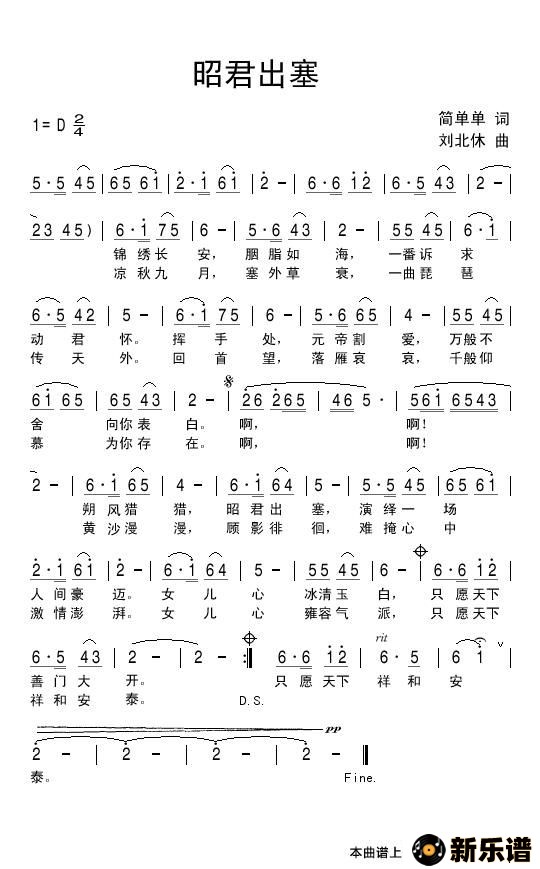 昭君出塞
1= D 2/4
简单单 词
刘北休 曲
5·5 45 | 65 61 | 2·1 61 | 2 - | 6·6 12 | 6·5 43 | 2 - |
23 45) | 6·1 75 | 6 - | 5·6 43 | 2 - | 55 45 | 6·1 |
锦绣长安， 胭脂如海， 一番诉求
凉秋九月， 塞外草衰， 一曲琵琶
6·5 42 | 5 - | 6·1 75 | 6 - | 5·6 65 | 4 - | 55 45 |
动君怀。 挥手处， 元帝割爱， 万般不
传天外。 回首望， 落雁哀哀， 千般仰
61 65 | 65 43 | 2 - | 26 265 | 46 5· | 561 6543 |
舍 向你表白。 啊， 啊！
慕 为你存在。 啊， 啊！
2 - | 6·1 65 | 4 - | 6·1 64 | 5 - | 5·5 45 | 65 61 |
朔风猎猎， 昭君出塞， 演绎一场
黄沙漫漫， 顾影徘徊， 难掩心中
2·1 61 | 2 - | 6·1 64 | 5 - | 55 45 | 6 - | 6·6 12 |
人间豪迈。 女儿心 冰清玉白， 只愿天下
激情澎湃。 女儿心 雍容气派， 只愿天下
rit
6·5 43 | 2 - | 2 - :| 6·6 12 | 6·5 | 6 1 v |
善门大开。 只愿天下 祥和安
祥和安泰。 D.S.
pp
2 - | 2 - | 2 - | 2 - ‖
泰。 Fine.
本曲谱上 新乐谱